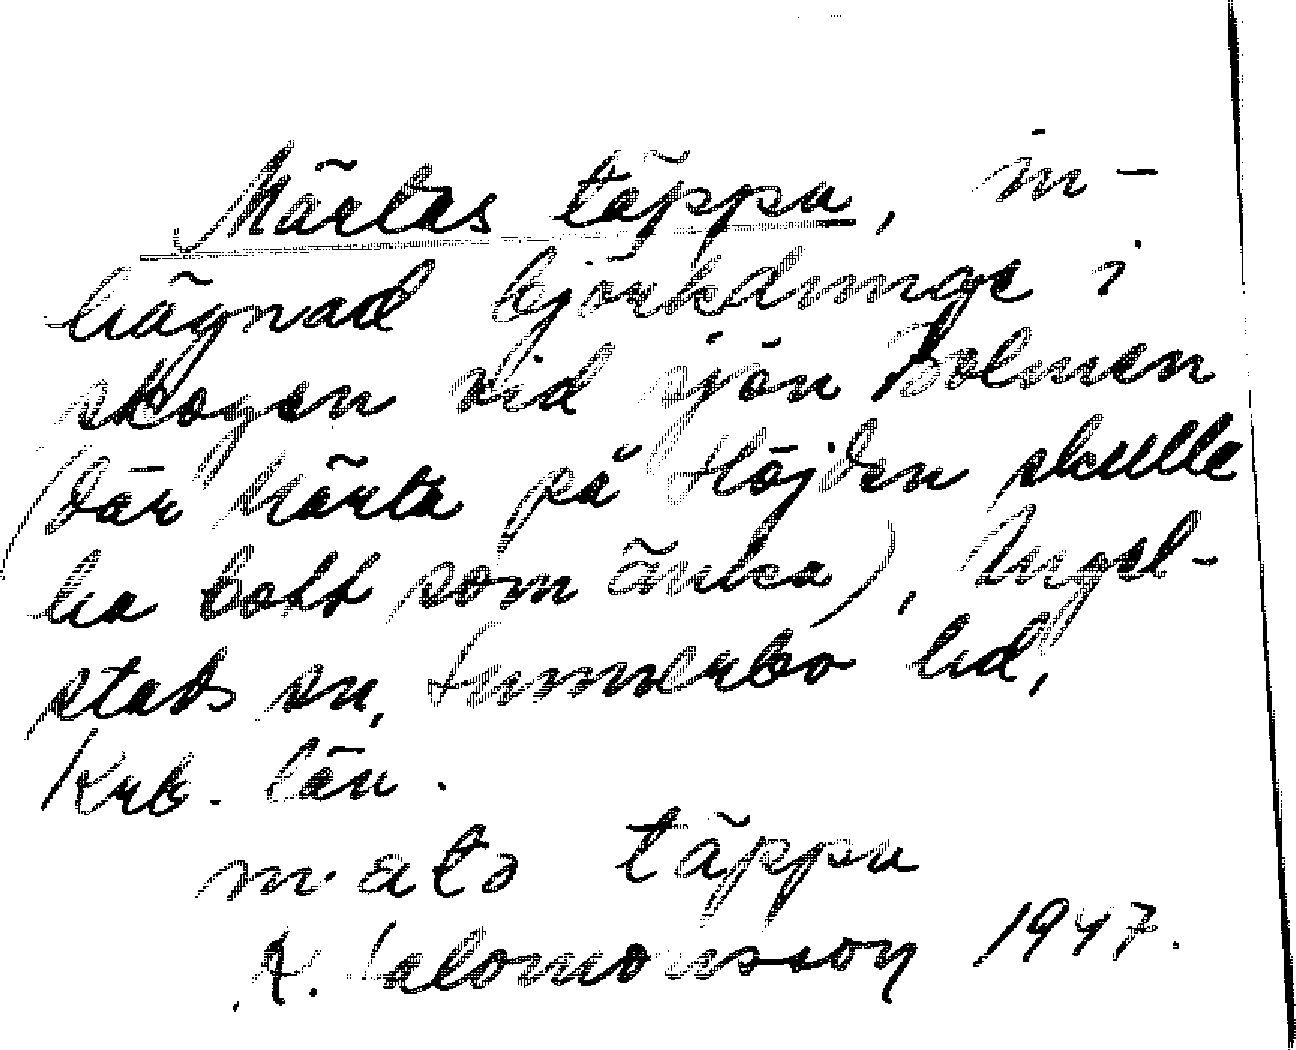 Märtas täppa, in-
hägnad björkdunge i
skogen vid sjön Bolmen
(där Märta på Höjden skulle
ha bott som änka), Angel-
stads sn, Sunnerbo hd,
Krb. län.
täppa
A. Salomonsson 1947.